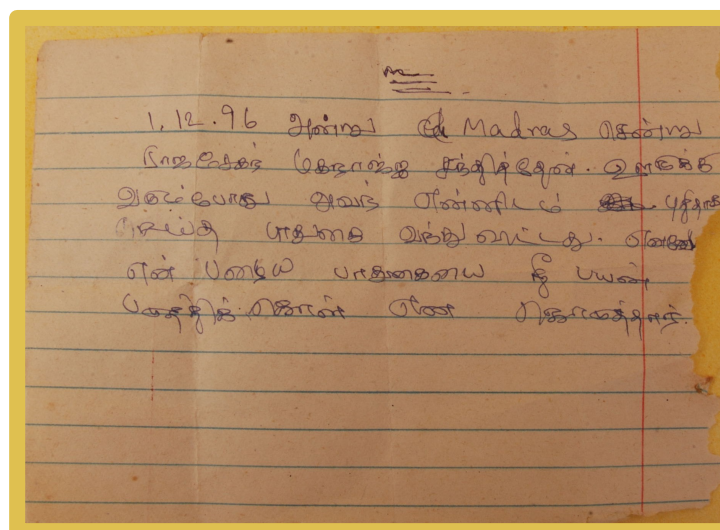 1.12.96 அன்று Madras சென்று
ராஜசேகர் மகராஜை சந்தித்தேன். ஊருக்கு
வரும்போது அவர் என்னிடம் புதிதாக
செய்த பாதுகை வந்து விட்டது. எனவே
என் பழைய பாதுகையை நீ பயன்
படுத்திக் கொள் என கொடுத்தார்.